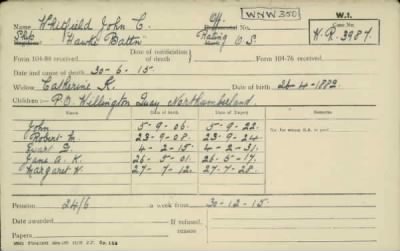 WNW350
W.1.
Name Whitfield John C. Off.
Case No.
Hawke Battn Rating O.S.
W.R. 3987.
Form 104-88 received. Date of notification of death Form 104-76 received.
Date and cause of death 30-6-15.
Widow Catherine K. Date of birth 26-4-1882.
Children P.O. Willington Quay Northumberland.
Name Date of Birth Date of Expiry
John 5-9-06. 5-9-22.
Robert M. 23-9-08. 23-9-24.
4-2-15. 4-2-31.
Jane A. K. 26-5-01. 26-5-17.
Margaret W. 27-7-12. 27-7-28.
Pension 24/6 a week from 30-12-15.
Date awarded If refused, reason
Papers